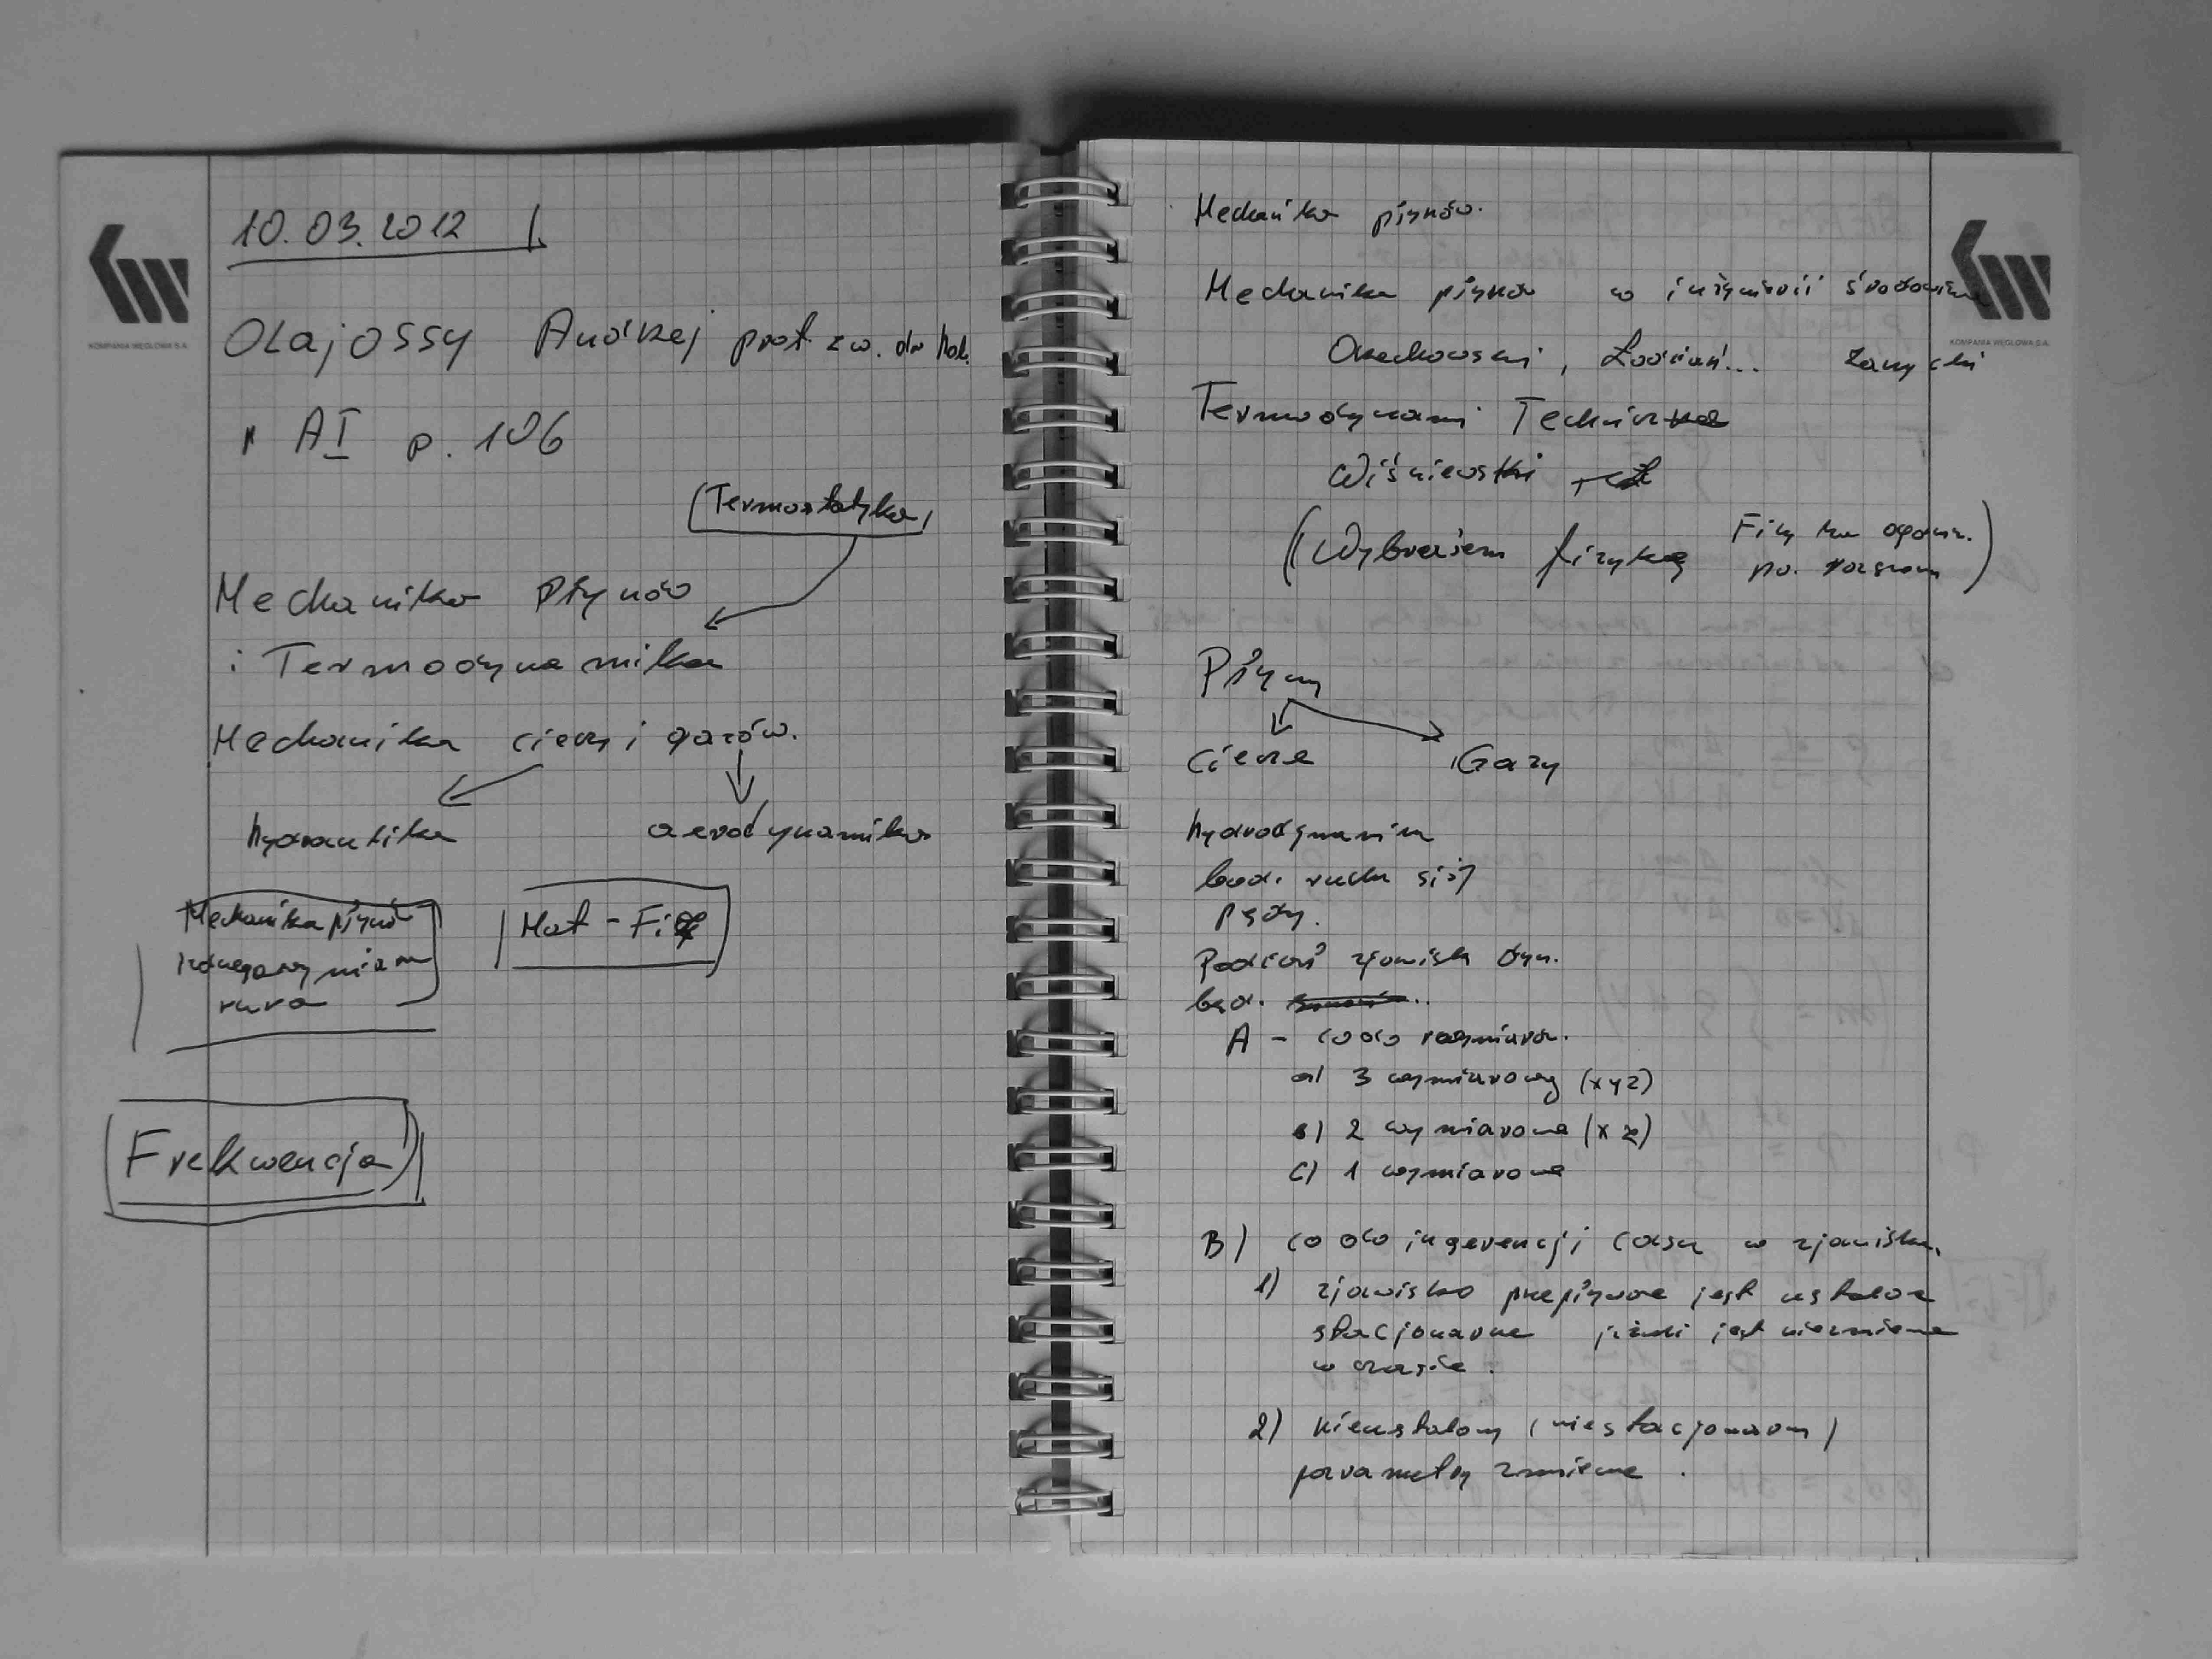 10.03.2012
KOMPANIA WĘGLOWA S.A.
Olajossy Andrzej prof. zw. dr hab.
AI p. 106
(Termostatyka)
Mechanika płynów
i Termodynamika
Mechanika cieczy i gazów.
hydraulika aerodynamika
Mechanika płynów
rura
Mat - Fiz
Frekwencja
Mechanika płynów.
Mechanika płynów w inżynierii środowiska
KOMPANIA WĘGLOWA S.A.
Orzechowski,
Termodynami Techniczna
Wiśniewski
(Wybrałem fizykę
Płyny
Ciecze Gazy
hydrodynamika
bad. ruchu
Podział zjawisk dyn.
A - co do rozmiarów.
a) 3 wymiarowy (xyz)
b) 2 wymiarowe (xz)
c) 1 wymiarowe
B) co do ingerencji czasu w zjawisku.
1) zjawisko przepływowe jest ustalone
stacjonarne jeżeli jest niezmienne
w czasie.
2) nieustalony (niestacjonarny)
parametry zmienne.